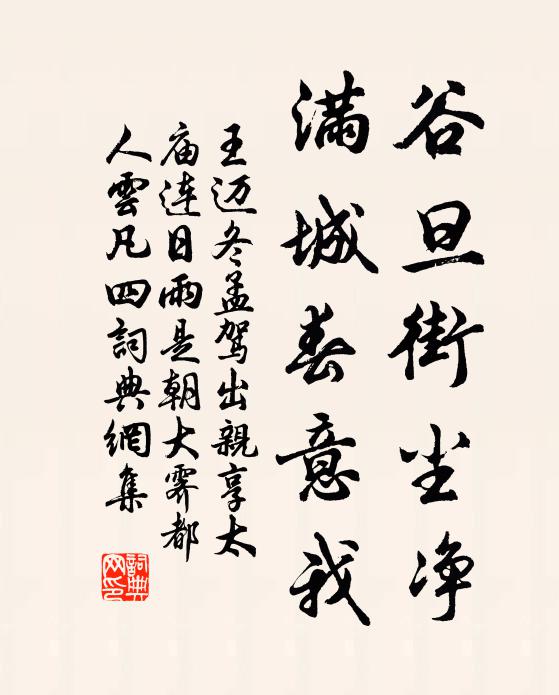 谷旦街尘净
满城春意我
王迈冬孟驾出親享太
庙连日雨是朝大霁都
人雲凡四詞典網集
詞典网印